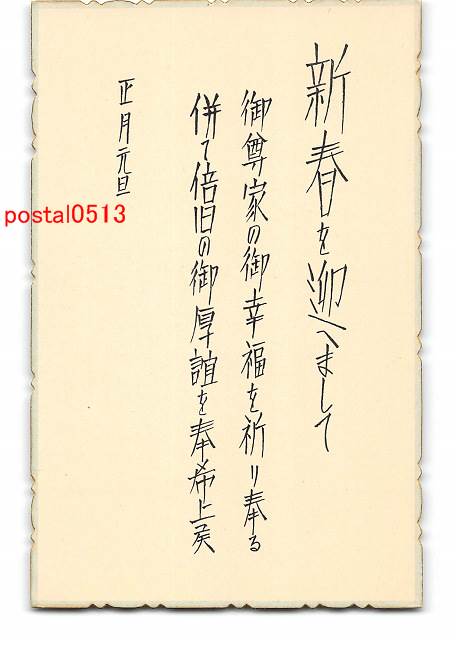 新春を迎へまして
御尊家の御幸福を祈り奉る
併て倍旧の御厚誼を奉希上候
正月元旦
postal0513